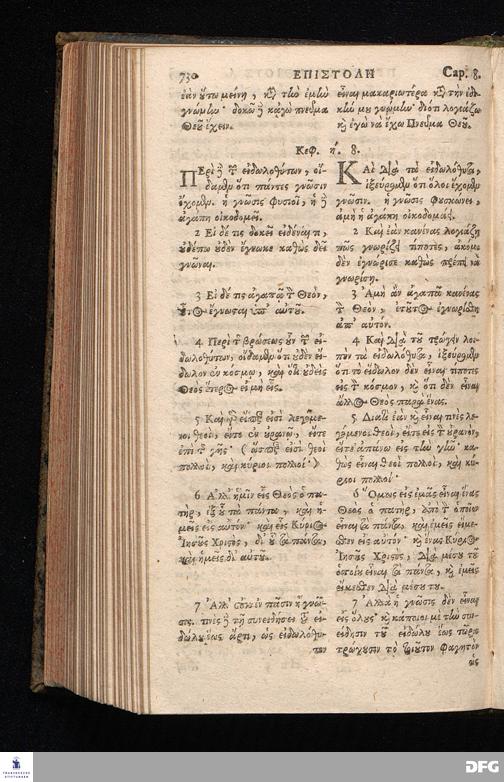 730 ΕΠΙΣΤΟΛΗ Cap. 8.
ἐὰν οὕτω μείνῃ, κτ̃ τὴν ἐμὴν
γνώμην· δοκῶ ἢ κἀγὼ πνεῦμα
Θεοῦ ἔχειν.
εἶναι μακαριωτέρα κτ̃ τὴν ἐδι-
κήν μου γνώμην· διότι λογιάζω
κ̀ ἐγὼ νὰ ἔχω Πνεῦμα Θεοῦ.
Κεφ. ή. 8.
ΠΕρὶ ἢ τ̃ εἰδωλοθύτων, οἴ-
δαμεν ὅτι πάντες γνῶσιν
ἔχομεν. ἡ γνῶσις φυσιοῖ, ἡ ἢ
ἀγάπη οἰκοδομεῖ.
2 Εἰ δέ τις δοκεῖ εἰδέναι τι,
οὐδέπω οὐδὲν ἔγνωκε καθὼς δεῖ
γνῶναι.
3 Εἰ δέ τις ἀγαπᾷ τ̀ Θεὸν,
οὗτος ἔγνωσται ὑπ' αὐτοῦ.
4 Περὶ τ̃ βρώσεως οὖν τ̃ εἰ-
δωλοθύτων, οἴδαμεν ὅτι οὐδὲν εἴ-
δωλον ἐν κόσμῳ, καὶ ὅτι οὐδεὶς
Θεὸς ἕτερος εἰ μὴ εἷς.
5 Καὶ γὸ εἴπερ εἰσὶ λεγόμε-
νοι θεοὶ, εἴτε ἐν οὐρανῷ, εἴτε
ἐπὶ τ̃ γῆς· (ὥσπερ εἰσὶ θεοὶ
πολλοὶ, καὶ κύριοι πολλοί·)
6 Ἀλλ' ἡμῖν εἷς Θεὸς ὁ πα-
τὴρ, ἐξ οὗ τὰ πάντα, καὶ ἡ-
μεῖς εἰς αὐτόν· καὶ εἷς Κύριος
Ἰησοῦς Χριστὸς, δι' οὗ τὰ πάντα,
καὶ ἡμεῖς δι' αὐτοῦ.
7 Ἀλλ' οὐκ ἐν πᾶσιν ἡ γνῶ-
σις. τινὲς ἢ τῇ συνειδήσει τοῦ εἰ-
δώλου ἕως ἄρτι, ὡς εἰδωλόθυ-
τον
ΚΑὶ διὰ τὰ εἰδωλόθυτα,
ἐξεύρομεν ὅτι ὅλοι ἔχομεν
γνῶσιν. ἡ γνῶσις φυσκώνει,
ἀμὴ ἡ ἀγάπη οἰκοδομᾷ.
2 Καὶ ἐὰν κανένας λογιάζῃ
πῶς γνωρίζει τίποτες, ἀκόμι
δὲν ἐγνώρισε καθὼς πρέπῃ νὰ
γνωρίσῃ.
3 Ἀμὴ ἂν ἀγαπᾷ κανένας
τ̀ Θεὸν, ἐτοῦτος ἐγνωρίσθη
ἀπ' αὐτόν.
4 Καὶ διὰ τοῦ τρώγην λοι-
πὸν τὰ εἰδωλόθυτα, ἐξεύρομεν
ὅτι τὸ εἴδωλον δὲν εἶναι τίποτες
εἰς τ̀ κόσμον, κ̀ ὅτι δὲν εἶναι
ἄλλος Θεὸς παρὰ ἕνας.
5 Διατὶ ἐὰν κ̀ εἶναι τινὲς λε-
γόμενοι θεοὶ, εἴτε εἰς τ̀ οὐρανὸν,
εἴτε ἀπάνω εἰς τὴν γῆν· κα-
θὼς εἶναι θεοὶ πολλοὶ, καὶ κύ-
ριοι πολλοί·
6 Ὅμως εἰς ἐμᾶς εἶναι ἕνας
Θεὸς ὁ πατὴρ, ἀπὸ τ̀ ὁποῖον
εἶναι τὰ πάντα, καὶ ἐμεῖς εἴμε-
σθεν εἰς αὐτόν· κ̀ ἕνας Κύριος
Ἰησοῦς Χριστὸς, διὰ μέσου τοῦ
ὁποίου εἶναι τὰ πάντα, κ̀ ἐμεῖς
εἴμεσθεν διὰ μέσου του.
7 Ἀλλὰ ἡ γνῶσις δὲν εἶναι
εἰς ὅλους· κ̀ κάποιοι μὲ τὴν συν-
είδησιν τοῦ εἰδώλου ἕως τώρα
τρώγουσιν τὸ τοιοῦτον φαγητὸν
ὡς
FRANCKESCHE
STIFTUNGEN
DFG